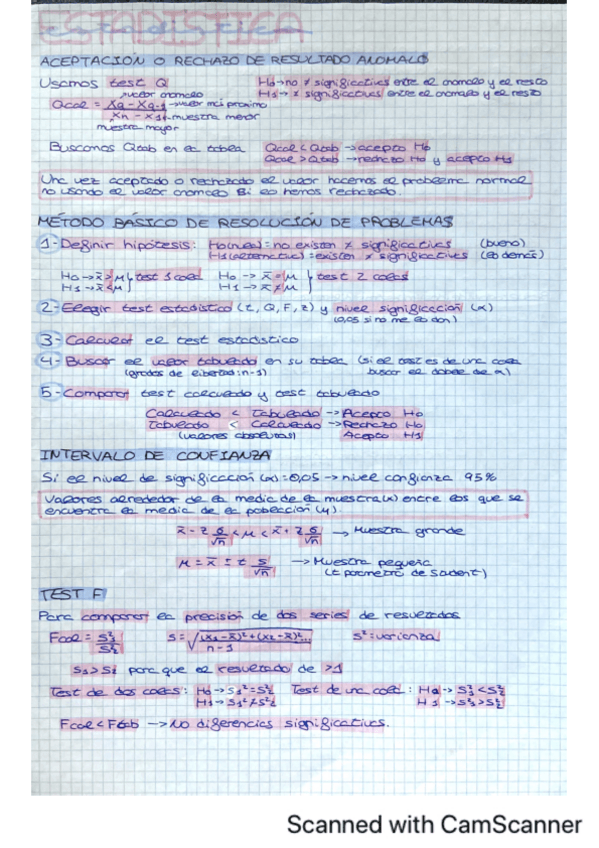 ESTADISTICA
ACEPTACIÓN O RECHAZO DE RESULTADO ANOMALO
Usamos test Q
H0→no ≠ significativas entre el anomalo y el resto
H1→ ≠ significativas entre el anomalo y el resto
valor anomalo
Qcal = Xa - Xa-1 →valor más proximo
Xn - X1→muestra menor
muestra mayor
Buscamos Qtab en la tabla
Qcal < Qtab →acepto H0
Qcal > Qtab →rechazo H0 y acepto H1
Una vez aceptado o rechazado el valor hacemos el problema normal
no usando el valor anomalo si lo hemos rechazado.
MÉTODO BÁSICO DE RESOLUCIÓN DE PROBLEMAS
1-Definir hipótesis: H0(nula)=no existen ≠ significativas (bueno)
H1(alternativa)=existen ≠ significativas (lo demás)
H0→x̄>μ } test 1 cola H0 → x̄=μ } test 2 colas
H1→x̄<μ H1→ x̄≠μ
2-Elegir test estadístico (t, Q, F, z) y nivel significación (α)
(0,05 si no me lo dan)
3-Calcular el test estadístico
4-Buscar el valor tabulado en su tabla (si el test es de una cola
(grados de libertad: n-1) buscar el doble de α)
5-Comparar test calculado y test tabulado
Calculado < Tabulado →Acepto H0
Tabulado < Calculado →Rechazo H0
(valores absolutos) Acepto H1
INTERVALO DE CONFIANZA
Si el nivel de significación (α)=0,05 →nivel confianza 95%
Valores alrededor de la media de la muestra(x) entre los que se
encuentra la media de la población (μ).
x̄ - z σ/√n < μ < x̄ + z σ/√n → Muestra grande
μ = x̄ ± t s/√n → Muestra pequeña
(t parmetro de Student)
TEST F
Para comparar la precisión de dos series de resultados
Fcal = S²1/S²2 S = √((x1-x̄)²+(x2-x̄)².../n-1) S²=varianza
S1>S2 para que el resultado de >1
Test de dos colas: H0→S1²=S2² Test de una cola: H0→ S²1<S²2
H1→S1²≠S2² H1→S²1>S²2
Fcal<Ftab →No diferencias significativas.
Scanned with CamScanner